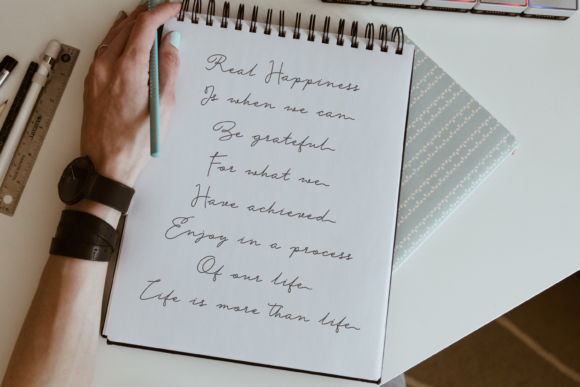 Real Happiness
Is when we can
Be grateful
For what we
Have achieved
Enjoy in a process
Of our life
Life is more than life